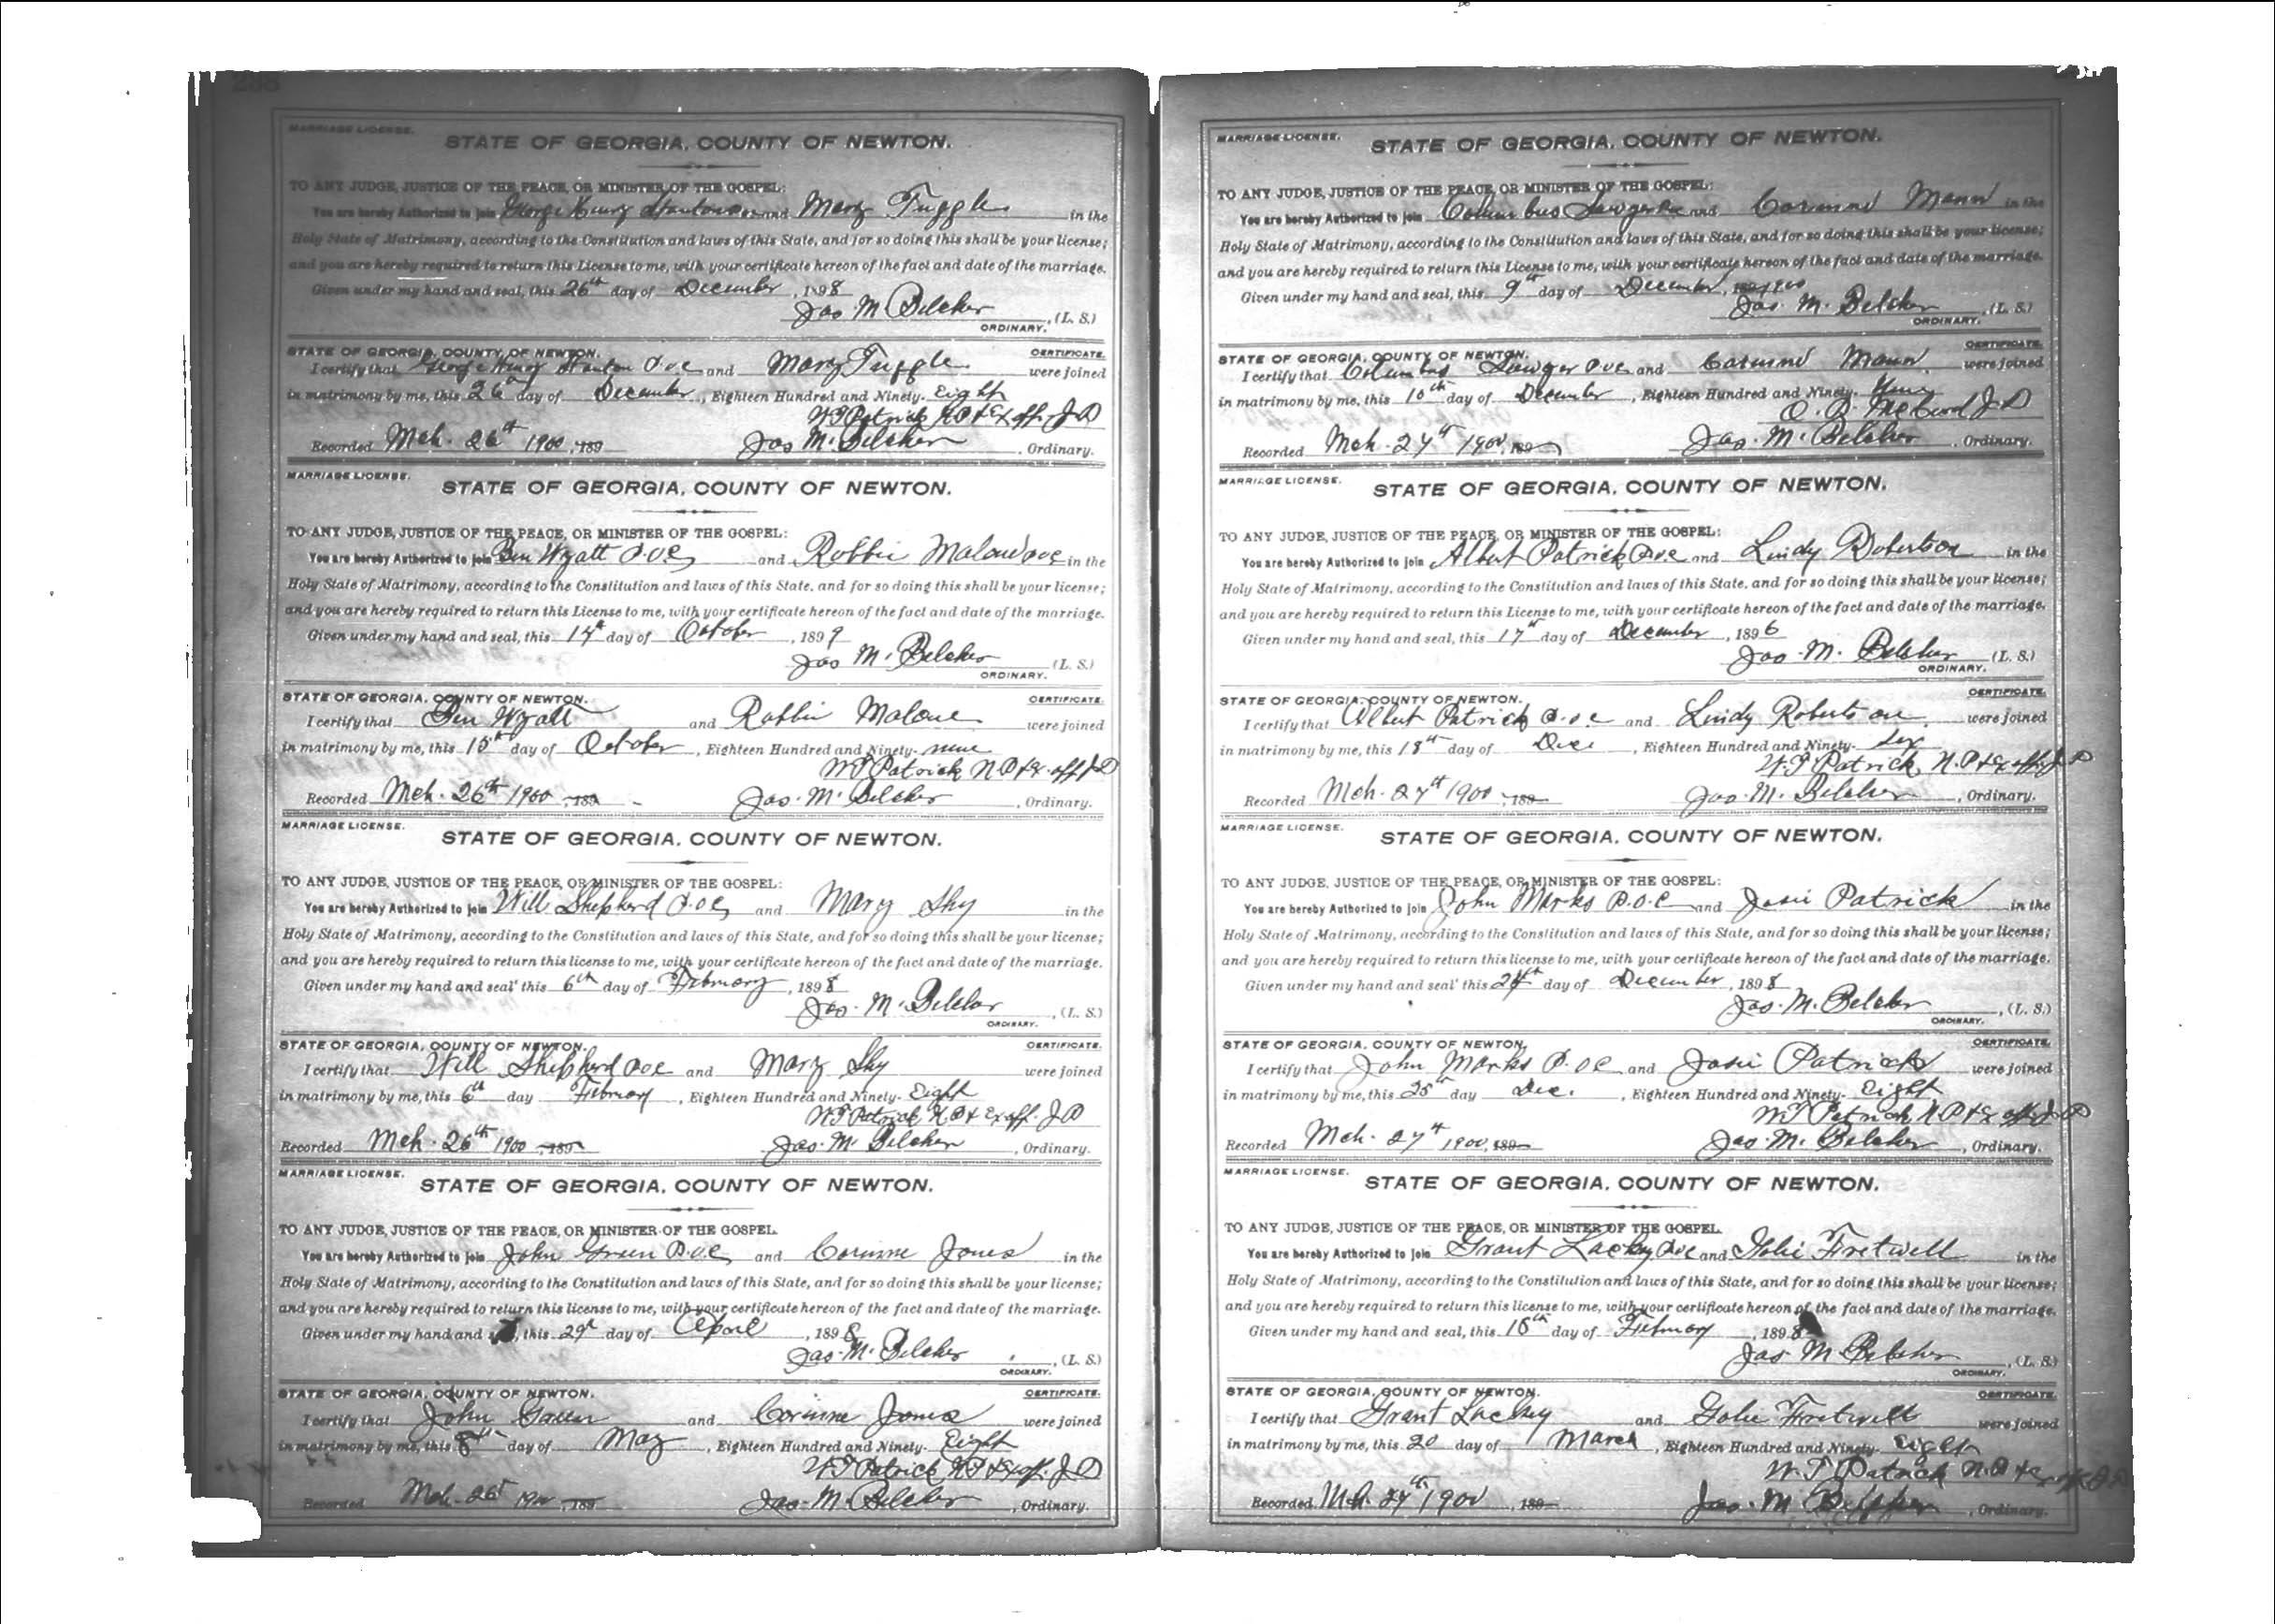 MARRIAGE LICENSE.
STATE OF GEORGIA, COUNTY OF NEWTON.
TO ANY JUDGE, JUSTICE OF THE PEACE, OR MINISTER OF THE GOSPEL:
You are hereby Authorized to join George Henry and Mary Tuggle in the
Holy State of Matrimony, according to the Constitution and laws of this State, and for so doing this shall be your license;
and you are hereby required to return this License to me, with your certificate hereon of the fact and date of the marriage.
Given under my hand and seal, this 26th day of December, 1898
Jas M Belcher, (L. S.)
ORDINARY.
STATE OF GEORGIA, COUNTY OF NEWTON. CERTIFICATE.
I certify that George Henry Stanton and Mary Tuggle were joined
in matrimony by me, this 26th day of December, Eighteen Hundred and Ninety- Eight
W T Patrick N.P. & Ex off. J P
Recorded Mch. 26th 1900, 189 Jas M. Belcher, Ordinary.
MARRIAGE LICENSE.
STATE OF GEORGIA, COUNTY OF NEWTON.
TO ANY JUDGE, JUSTICE OF THE PEACE, OR MINISTER OF THE GOSPEL:
You are hereby Authorized to join Ben Wyatt P.O.C and Robbie Malone in the
Holy State of Matrimony, according to the Constitution and laws of this State, and for so doing this shall be your license;
and you are hereby required to return this License to me, with your certificate hereon of the fact and date of the marriage.
Given under my hand and seal, this 14th day of October, 1899
Jas M. Belcher (L. S.)
ORDINARY.
STATE OF GEORGIA, COUNTY OF NEWTON. CERTIFICATE.
I certify that Ben Wyatt and Robbie Malone were joined
in matrimony by me, this 15th day of October, Eighteen Hundred and Ninety- nine
W T Patrick N.P. & Ex. off J P
Recorded Mch. 26th 1900, 189 Jas. M. Belcher, Ordinary.
MARRIAGE LICENSE.
STATE OF GEORGIA, COUNTY OF NEWTON.
TO ANY JUDGE, JUSTICE OF THE PEACE, OR MINISTER OF THE GOSPEL:
You are hereby Authorized to join Will Shepherd P.O.C and Mary Shy in the
Holy State of Matrimony, according to the Constitution and laws of this State, and for so doing this shall be your license;
and you are hereby required to return this license to me, with your certificate hereon of the fact and date of the marriage.
Given under my hand and seal' this 6th day of February, 1898
Jas. M. Belcher, (L. S.)
ORDINARY.
STATE OF GEORGIA, COUNTY OF NEWTON. CERTIFICATE.
I certify that Will Shepherd P.O.C and Mary Shy were joined
in matrimony by me, this 6th day February, Eighteen Hundred and Ninety- Eight
W T Patrick N.P. & Ex off. J P
Recorded Mch. 26th 1900, 189 Jas. M. Belcher, Ordinary.
MARRIAGE LICENSE.
STATE OF GEORGIA, COUNTY OF NEWTON.
TO ANY JUDGE, JUSTICE OF THE PEACE, OR MINISTER OF THE GOSPEL.
You are hereby Authorized to join John Green P.O.C and Corinne Jones in the
Holy State of Matrimony, according to the Constitution and laws of this State, and for so doing this shall be your license;
and you are hereby required to return this license to me, with your certificate hereon of the fact and date of the marriage.
Given under my hand and , this 29th day of April, 1898
Jas. M. Belcher, (L. S.)
ORDINARY.
STATE OF GEORGIA, COUNTY OF NEWTON. CERTIFICATE.
I certify that John Green and Corinne Jones were joined
in matrimony by me, this 8th day of May, Eighteen Hundred and Ninety- Eight
W T Patrick N.P. & Ex off. J P
Recorded Mch. 26th 1900, 189 Jas. M. Belcher, Ordinary.
MARRIAGE LICENSE.
STATE OF GEORGIA, COUNTY OF NEWTON.
TO ANY JUDGE, JUSTICE OF THE PEACE, OR MINISTER OF THE GOSPEL:
You are hereby Authorized to join Columbus and Corinne Mann in the
Holy State of Matrimony, according to the Constitution and laws of this State, and for so doing this shall be your license;
and you are hereby required to return this License to me, with your certificate hereon of the fact and date of the marriage.
Given under my hand and seal, this 9th day of December, 1900
Jas. M. Belcher, (L. S.)
ORDINARY.
STATE OF GEORGIA, COUNTY OF NEWTON. CERTIFICATE.
I certify that Columbus Sawyer P.O.C and Corinne Mann were joined
in matrimony by me, this 10th day of December, Eighteen Hundred and Ninety-
J P
Recorded Mch. 27th 1900, 189 Jas. M. Belcher, Ordinary.
MARRIAGE LICENSE.
STATE OF GEORGIA, COUNTY OF NEWTON.
TO ANY JUDGE, JUSTICE OF THE PEACE, OR MINISTER OF THE GOSPEL:
You are hereby Authorized to join Albert Patrick P.O.C and Lindy Robertson in the
Holy State of Matrimony, according to the Constitution and laws of this State, and for so doing this shall be your license;
and you are hereby required to return this License to me, with your certificate hereon of the fact and date of the marriage.
Given under my hand and seal, this 17th day of December, 1896
Jas. M. Belcher (L. S.)
ORDINARY.
STATE OF GEORGIA, COUNTY OF NEWTON. CERTIFICATE.
I certify that Albert Patrick P.O.C and Lindy Robertson were joined
in matrimony by me, this 18th day of Dec., Eighteen Hundred and Ninety- Six
W. T Patrick, N.P & Ex offi J P
Recorded Mch. 27th 1900, 189 Jas. M. Belcher, Ordinary.
MARRIAGE LICENSE.
STATE OF GEORGIA, COUNTY OF NEWTON.
TO ANY JUDGE, JUSTICE OF THE PEACE, OR MINISTER OF THE GOSPEL:
You are hereby Authorized to join John Marks P.O.C and Josie Patrick in the
Holy State of Matrimony, according to the Constitution and laws of this State, and for so doing this shall be your license;
and you are hereby required to return this license to me, with your certificate hereon of the fact and date of the marriage.
Given under my hand and seal' this 24th day of December, 1898
Jas. M. Belcher, (L. S.)
ORDINARY.
STATE OF GEORGIA, COUNTY OF NEWTON. CERTIFICATE.
I certify that John Marks P.O.C and Josie Patrick were joined
in matrimony by me, this 25th day Dec., Eighteen Hundred and Ninety- Eight
W T Patrick, N.P & Ex off J P
Recorded Mch. 27th 1900, 189 Jas. M. Belcher, Ordinary.
MARRIAGE LICENSE.
STATE OF GEORGIA, COUNTY OF NEWTON.
TO ANY JUDGE, JUSTICE OF THE PEACE, OR MINISTER OF THE GOSPEL.
You are hereby Authorized to join Grant Lackey P.O.C and Fretwell in the
Holy State of Matrimony, according to the Constitution and laws of this State, and for so doing this shall be your license;
and you are hereby required to return this license to me, with your certificate hereon of the fact and date of the marriage.
Given under my hand and seal, this 18th day of February, 1898
Jas M. Belcher, (L. S.)
ORDINARY.
STATE OF GEORGIA, COUNTY OF NEWTON. CERTIFICATE.
I certify that Grant Lackey and Fretwell were joined
in matrimony by me, this 20 day of March, Eighteen Hundred and Ninety- Eight
W. T Patrick N.P & Ex off J P
Recorded Mch. 27th 1900, 189 Jas. M. Belcher, Ordinary.